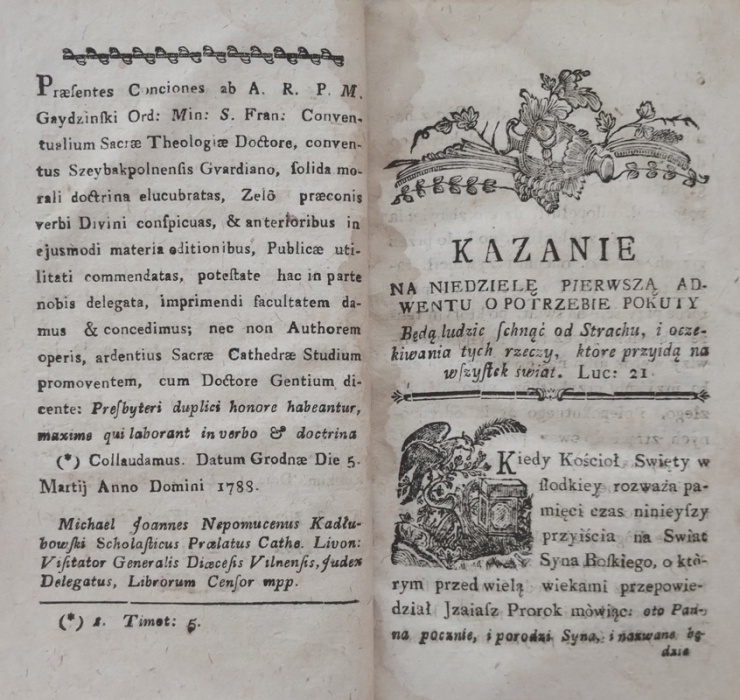 Præſentes Conciones ab A. R. P. M.
Gaydzinſki Ord: Min: S. Fran: Conven-
tualium Sacræ Theologiæ Doctore, conven-
tus Szeybakpolnenſis Gvardiano, ſolida mo-
rali doctrina elucubratas, Zelô præconis
verbi Divini conſpicuas, & anterioribus in
ejusmodi materia editionibus, Publicæ uti-
litati commendatas, poteſtate hac in parte
nobis delegata, imprimendi facultatem da-
mus & concedimus; nec non Authorem
operis, ardentius Sacræ Cathedræ Studium
promoventem, cum Doctore Gentium di-
cente: Preſbyteri duplici honore habeantur,
maxime qui laborant in verbo & doctrina
(*) Collaudamus. Datum Grodnæ Die 5.
Martij Anno Domini 1788.
Michael Joannes Nepomucenus Kadłu-
bowſki Scholaſticus Prælatus Cathe. Livon:
Viſitator Generalis Diæceſis Vilnenſis, Judex
Delegatus, Librorum Cenſor mpp.
(*) 1. Timot: 5.
KAZANIE
NA NIEDZIELĘ PIERWSZĄ AD-
WENTU O POTRZEBIE POKUTY
Będą ludzie ſchnąć od Strachu, i ocze-
kiwania tych rzeczy, ktore przyidą na
wſzyſtek świat. Luc: 21.
Kiedy Kościoł Swięty w
ſłodkiey rozważa pa-
mięci czas ninieyſzy
przyiścia na Swiat
Syna Boſkiego, o któ-
rym przed wielą wiekami przepowie-
dział Jzaiaſz Prorok mówiąc: oto Pan-
na pocznie, i porodzi Syna, i nazwane bę-
dzie